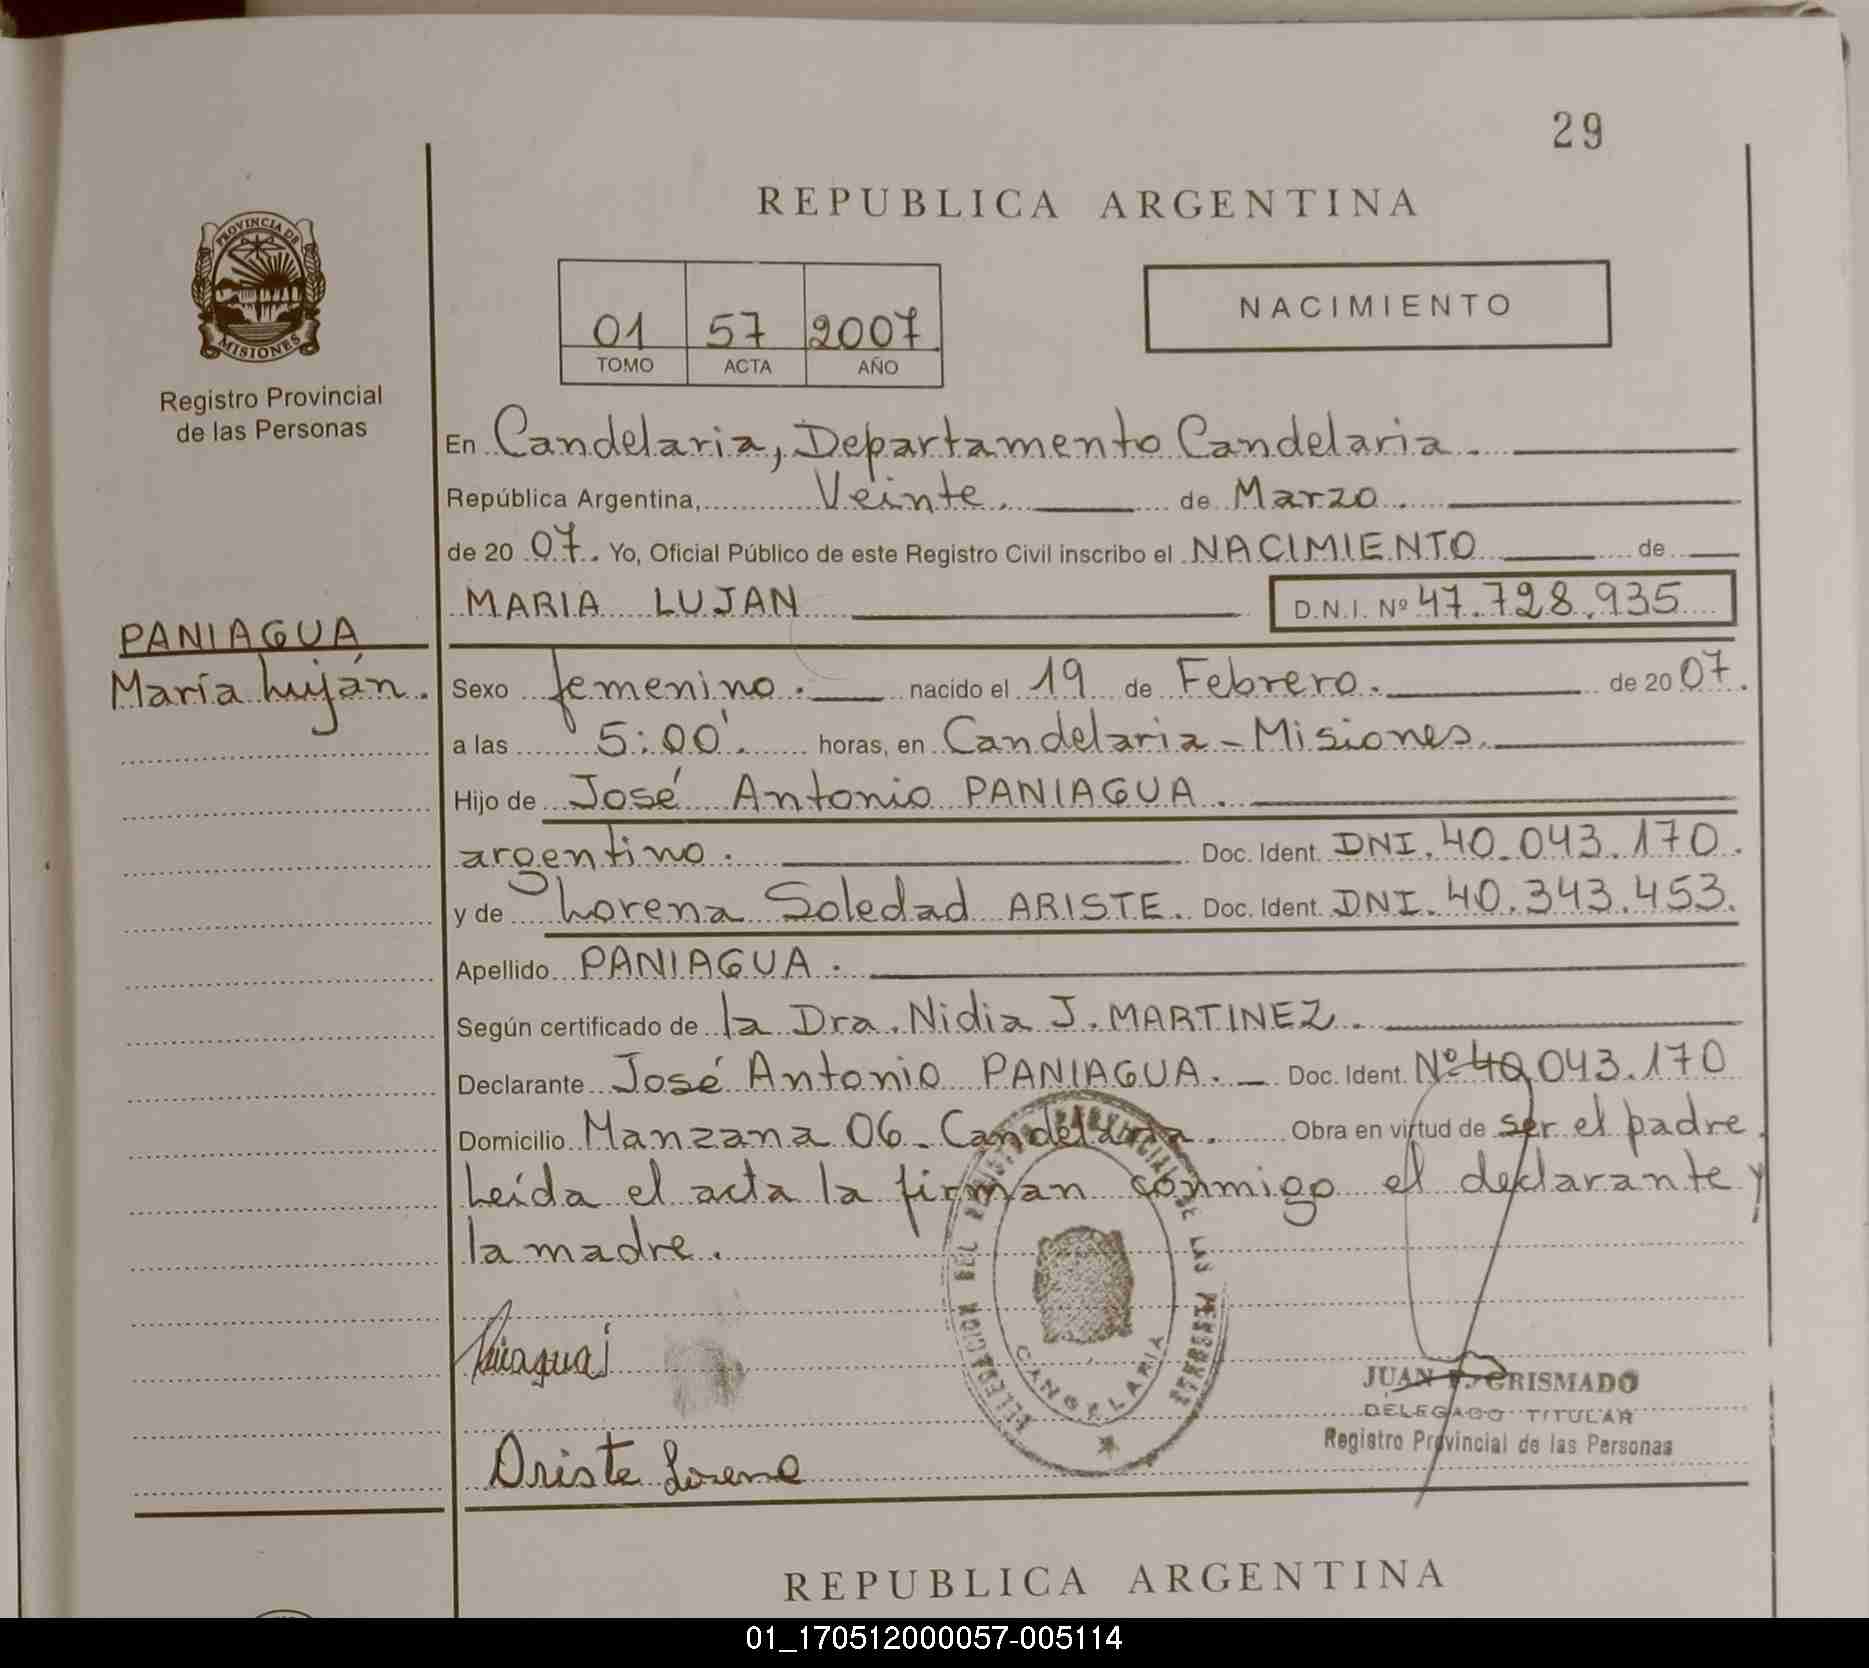 29
REPUBLICA ARGENTINA
PROVINCIA DE
MISIONES
Registro Provincial
de las Personas
01 57 2007
TOMO ACTA AÑO
NACIMIENTO
En Candelaria, Departamento Candelaria.
República Argentina, Veinte. de Marzo
de 20 07. Yo, Oficial Público de este Registro Civil inscribo el NACIMIENTO de
MARIA LUJAN D.N.I. Nº 47.728.935
PANIAGUA
María Luján.
Sexo femenino. nacido el 19 de Febrero. de 20 07.
a las 5:00'. horas, en Candelaria - Misiones.
Hijo de José Antonio PANIAGUA.
argentino. Doc. Ident. DNI. 40.043.170.
y de Lorena Soledad ARISTE. Doc. Ident. DNI. 40.343.453.
Apellido PANIAGUA.
Según certificado de la Dra. Nidia J. MARTINEZ.
Declarante José Antonio PANIAGUA. - Doc. Ident. Nº 40.043.170
Domicilio Manzana 06 - Candelaria. Obra en virtud de ser el padre.
Leída el acta la firman conmigo el declarante y
la madre.
DELEGACION DEL REGISTRO PROVINCIAL DE LAS PERSONAS
CANDELARIA
JUAN GRISMADO
DELEGADO TITULAR
Registro Provincial de las Personas
Ariste Lorena
REPUBLICA ARGENTINA
01_170512000057-005114